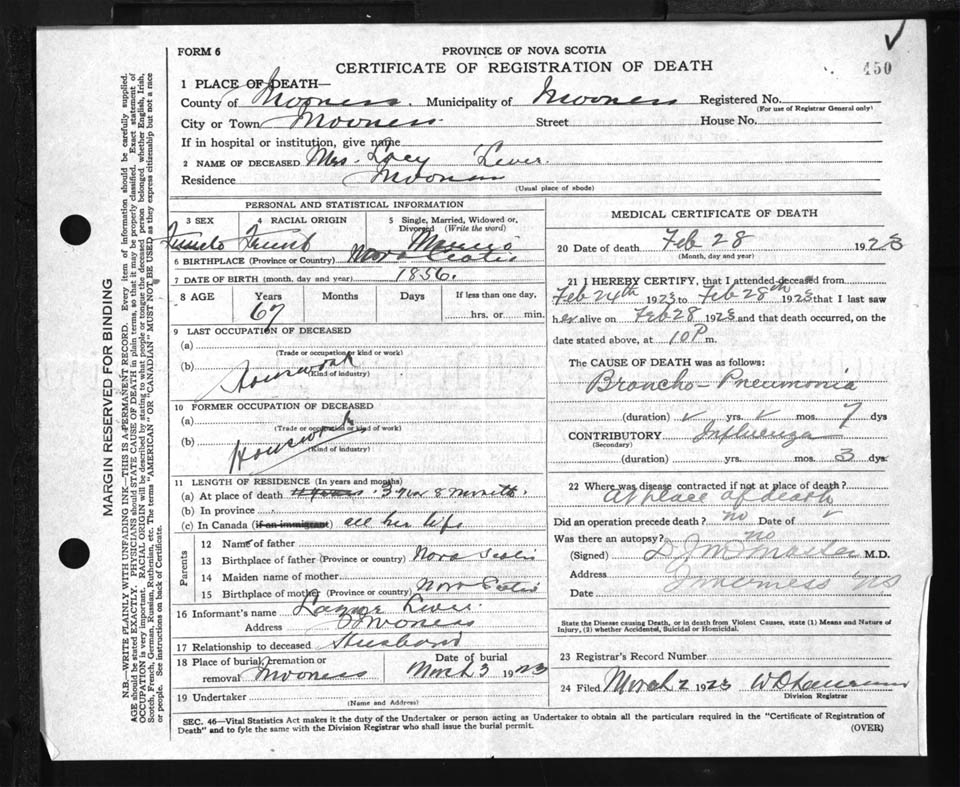 450
FORM 6
PROVINCE OF NOVA SCOTIA
CERTIFICATE OF REGISTRATION OF DEATH
1 PLACE OF DEATH—
County of Municipality of Registered No.
(For use of Registrar General only)
City or Town Street House No.
If in hospital or institution, give name
2 NAME OF DECEASED Mrs.
Residence
(Usual place of abode)
PERSONAL AND STATISTICAL INFORMATION
3 SEX 4 RACIAL ORIGIN 5 Single, Married, Widowed or, Divorced (Write the word)
6 BIRTHPLACE (Province or Country) Nova Scotia
7 DATE OF BIRTH (month, day and year) 1856.
8 AGE Years Months Days If less than one day,
67 hrs. or min.
9 LAST OCCUPATION OF DECEASED
(a)
(Trade or occupation or kind or work)
(b) Housework
(Kind of industry)
10 FORMER OCCUPATION OF DECEASED
(a)
(Trade or occupation or kind of work)
(b) Housework
(Kind of industry)
11 LENGTH OF RESIDENCE (In years and months)
(a) At place of death 3 8
(b) In province
(c) In Canada (if an immigrant) all her life
Parents
12 Name of father
13 Birthplace of father (Province or country) Nova Scotia
14 Maiden name of mother
15 Birthplace of mother (Province or country) Nova Scotia
16 Informant's name
Address
17 Relationship to deceased Husband
18 Place of burial, cremation or removal Date of burial
March 3 1923
19 Undertaker
(Name and Address)
MEDICAL CERTIFICATE OF DEATH
20 Date of death Feb 28 1923
(Month, day and year)
21 I HEREBY CERTIFY, that I attended deceased from
Feb 24th 1923 to Feb 28th 1923 that I last saw
her alive on Feb 28 1923 and that death occurred, on the
date stated above, at 10 P m.
The CAUSE OF DEATH was as follows:
Broncho-Pneumonia
(duration) yrs. mos. 7 dys
CONTRIBUTORY Influenza
(Secondary)
(duration) yrs. mos. 3 dys.
22 Where was disease contracted if not at place of death?
At place of death
Did an operation precede death? no Date of
Was there an autopsy? no
(Signed) M.D.
Address Inverness NS
Date
State the Disease causing Death, or in death from Violent Causes, state (1) Means and Nature of
Injury, (2) whether Accidental, Suicidal or Homicidal.
23 Registrar's Record Number
24 Filed March 2 1923
Division Registrar
SEC. 46—Vital Statistics Act makes it the duty of the Undertaker or person acting as Undertaker to obtain all the particulars required in the "Certificate of Registration of
Death" and to fyle the same with the Division Registrar who shall issue the burial permit.
(OVER)
MARGIN RESERVED FOR BINDING
N.B.—WRITE PLAINLY WITH UNFADING INK—THIS IS A PERMANENT RECORD. Every item of information should be carefully supplied.
AGE should be stated EXACTLY. PHYSICIANS should STATE CAUSE OF DEATH in plain terms, so that it may be properly classified. Exact statement of
OCCUPATION is very important. RACIAL ORIGIN will be described by stating to what people or tongue the deceased person belonged whether English, Irish,
Scotch, French, German, Russian, Ruthenian, etc. The terms "AMERICAN" or "CANADIAN" MUST NOT BE USED as they express citizenship but not a race
or people. See instructions on back of Certificate.